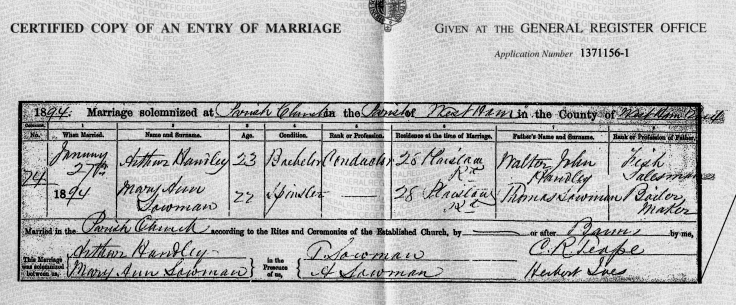 CERTIFIED COPY OF AN ENTRY OF MARRIAGE
GIVEN AT THE GENERAL REGISTER OFFICE
Application Number 1371156-1
1894. Marriage solemnized at Parish Church in the Parish of West Ham in the County of
No. When Married. Name and Surname. Age. Condition. Rank or Profession. Residence at the time of Marriage. Father's Name and Surname. Rank or Profession of Father.
74 January 27th 1894
Arthur Handley 23 Bachelor Conductor 28 Plaistow Rd Walton John Handley Fish Salesman
Mary Ann Sowman 22 Spinster — 28 Plaistow Rd Thomas Sowman Boiler Maker
Married in the Parish Church according to the Rites and Ceremonies of the Established Church, by — or after Banns by me,
This Marriage was solemnized between us, Arthur Handley in the Presence of us, T Sowman
Mary Ann Sowman A Sowman Herbert Ives